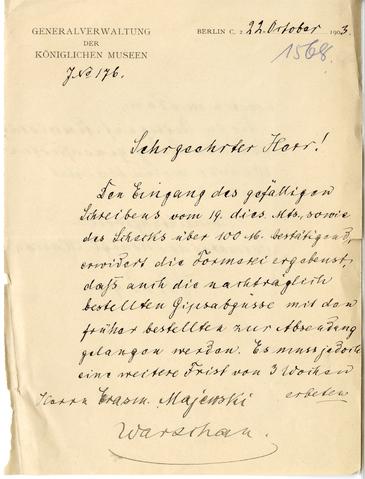 GENERALVERWALTUNG
DER
KÖNIGLICHEN MUSEEN
BERLIN C. 2 22. October 1903.
1568.
J № 176.
Sehrgeehrter Herr!
Den Eingang des gefälligen
Schreibens vom 19. dies. Mts., sowie
des Schecks über 100 M. bestätigend,
erwidert die Formerei ergebenst,
daß auch die nachträglich
bestellten Gipsabgüsse mit den
früher bestellten zur Absendung
gelangen werden. Es muss jedoch
eine weitere Frist von 3 Wochen
erbeten
Herrn Erasm. Majewski
Warschau.